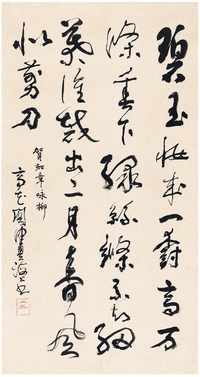 碧玉妝成一樹高万
條垂下绿絲縧不知细
葉誰裁出二月春風
似剪刀
賀知章 咏柳